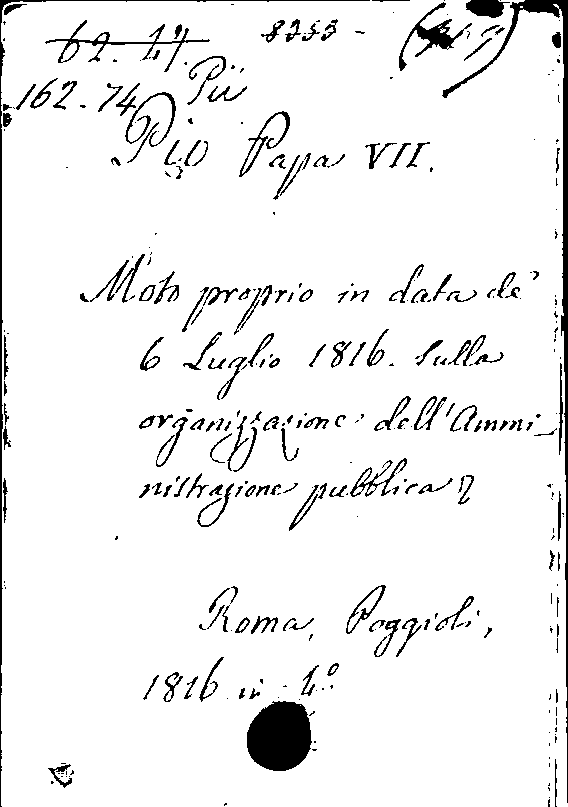 62. 27. 8353 -
162.74 Pii
Pio Papa VII.
Moto proprio in data de'
6 Luglio 1816. Sulla
organizzazione dell'Ammi-
nistrazione pubblica
Roma, Poggioli,
1816 in 4º